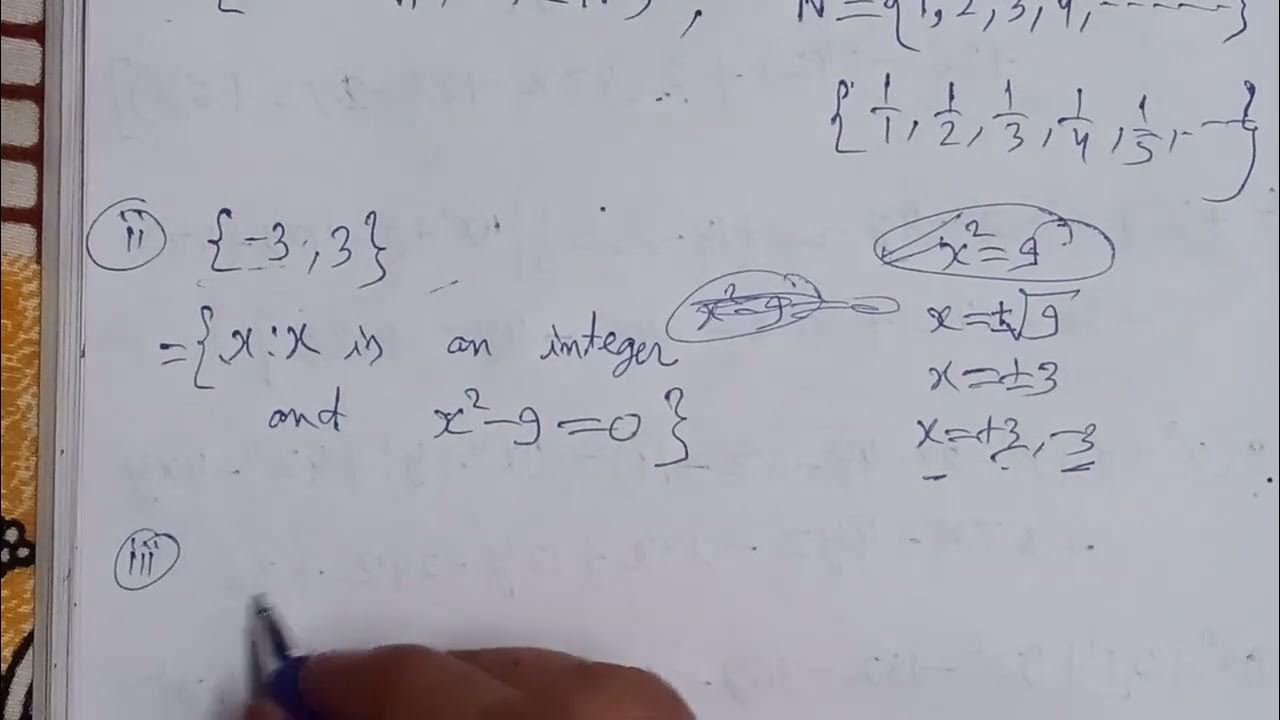 N={1,2,3,4,------}
{1/1, 1/2, 1/3, 1/4, 1/5, - —}
ii {-3,3}
={x:x is an integer
and x²-9=0}
x²-9=0
x²=9
x=±√9
x=±3
x=+3,-3
iii